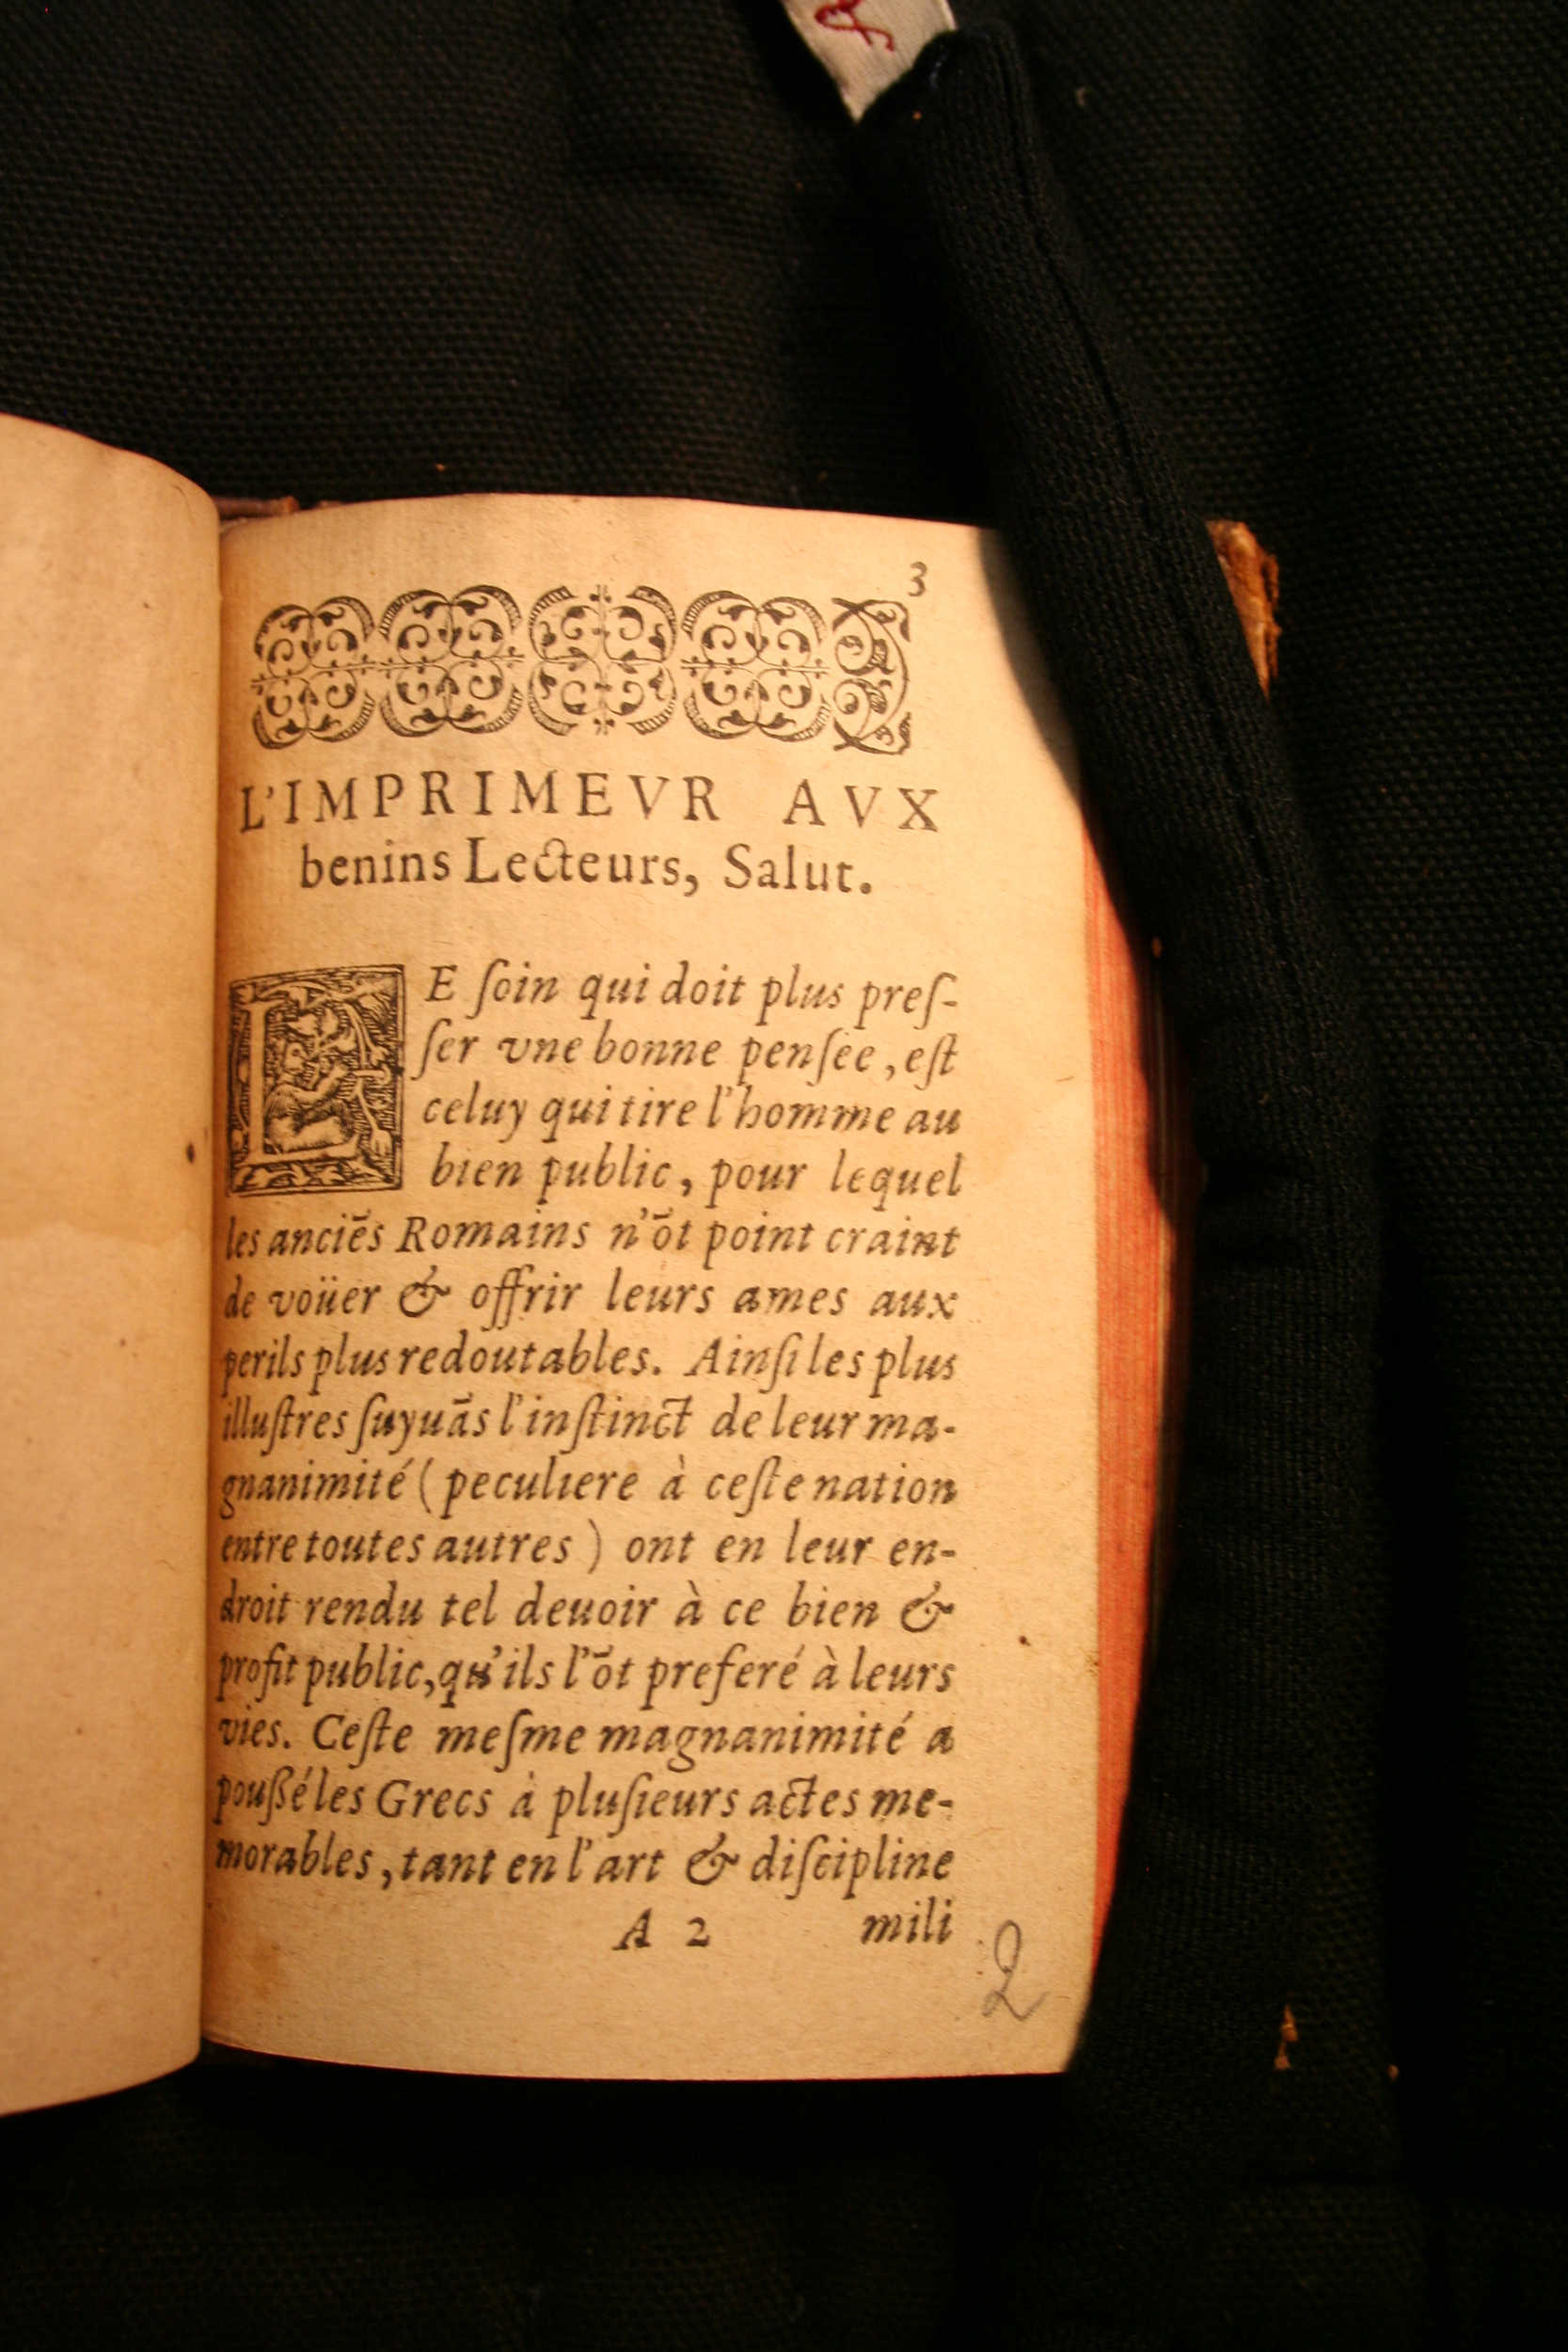 3
L'IMPRIMEVR AVX
benins Lecteurs, Salut.
LE ſoin qui doit plus preſ-
ſer vne bonne penſee, eſt
celuy qui tire l'homme au
bien public, pour lequel
les anciẽs Romains n'õt point craint
de voüer & offrir leurs ames aux
perils plus redoutables. Ainſi les plus
illuſtres ſuyuãs l'inſtinct de leur ma-
gnanimité (peculiere à ceſte nation
entre toutes autres) ont en leur en-
droit rendu tel deuoir à ce bien &
profit public, qu'ils l'õt preferé à leurs
vies. Ceſte meſme magnanimité a
poußé les Grecs à pluſieurs actes me-
morables, tant en l'art & diſcipline
A 2 mili
2